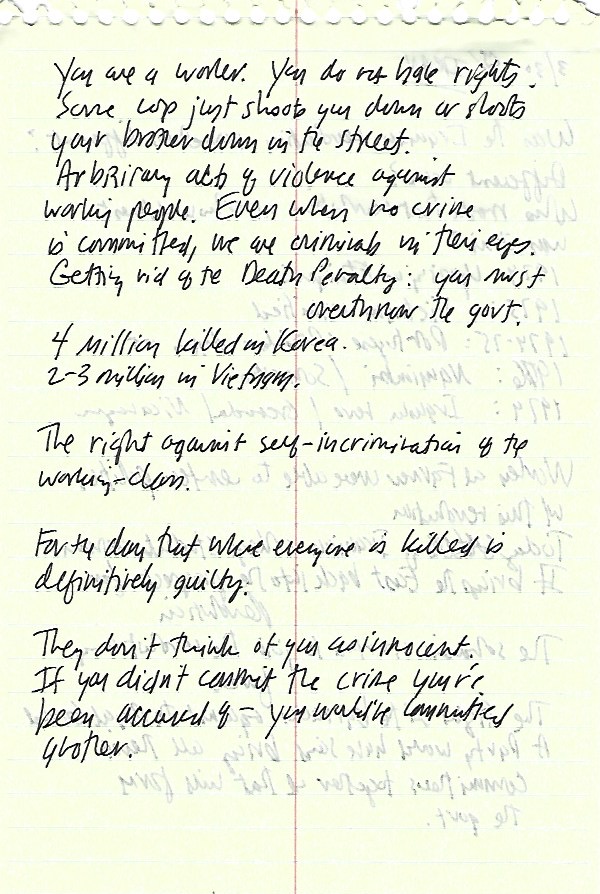 You are a worker. You do not have rights.
Some cop just shoots you down or shoots
your brother down in the street.
Arbitrary acts of violence against
working people. Even when no crime
is committed, we are criminals in their eyes.
Getting rid of the Death Penalty: you must
overthrow the govt.
4 million killed in Korea.
2-3 million in Vietnam.
The right against self-incrimination of the
working-class.
For the day that where everyone is killed is
definitively guilty.
They don't think of you as innocent.
If you didn't commit the crime you're
been accused of - you would've committed
another.